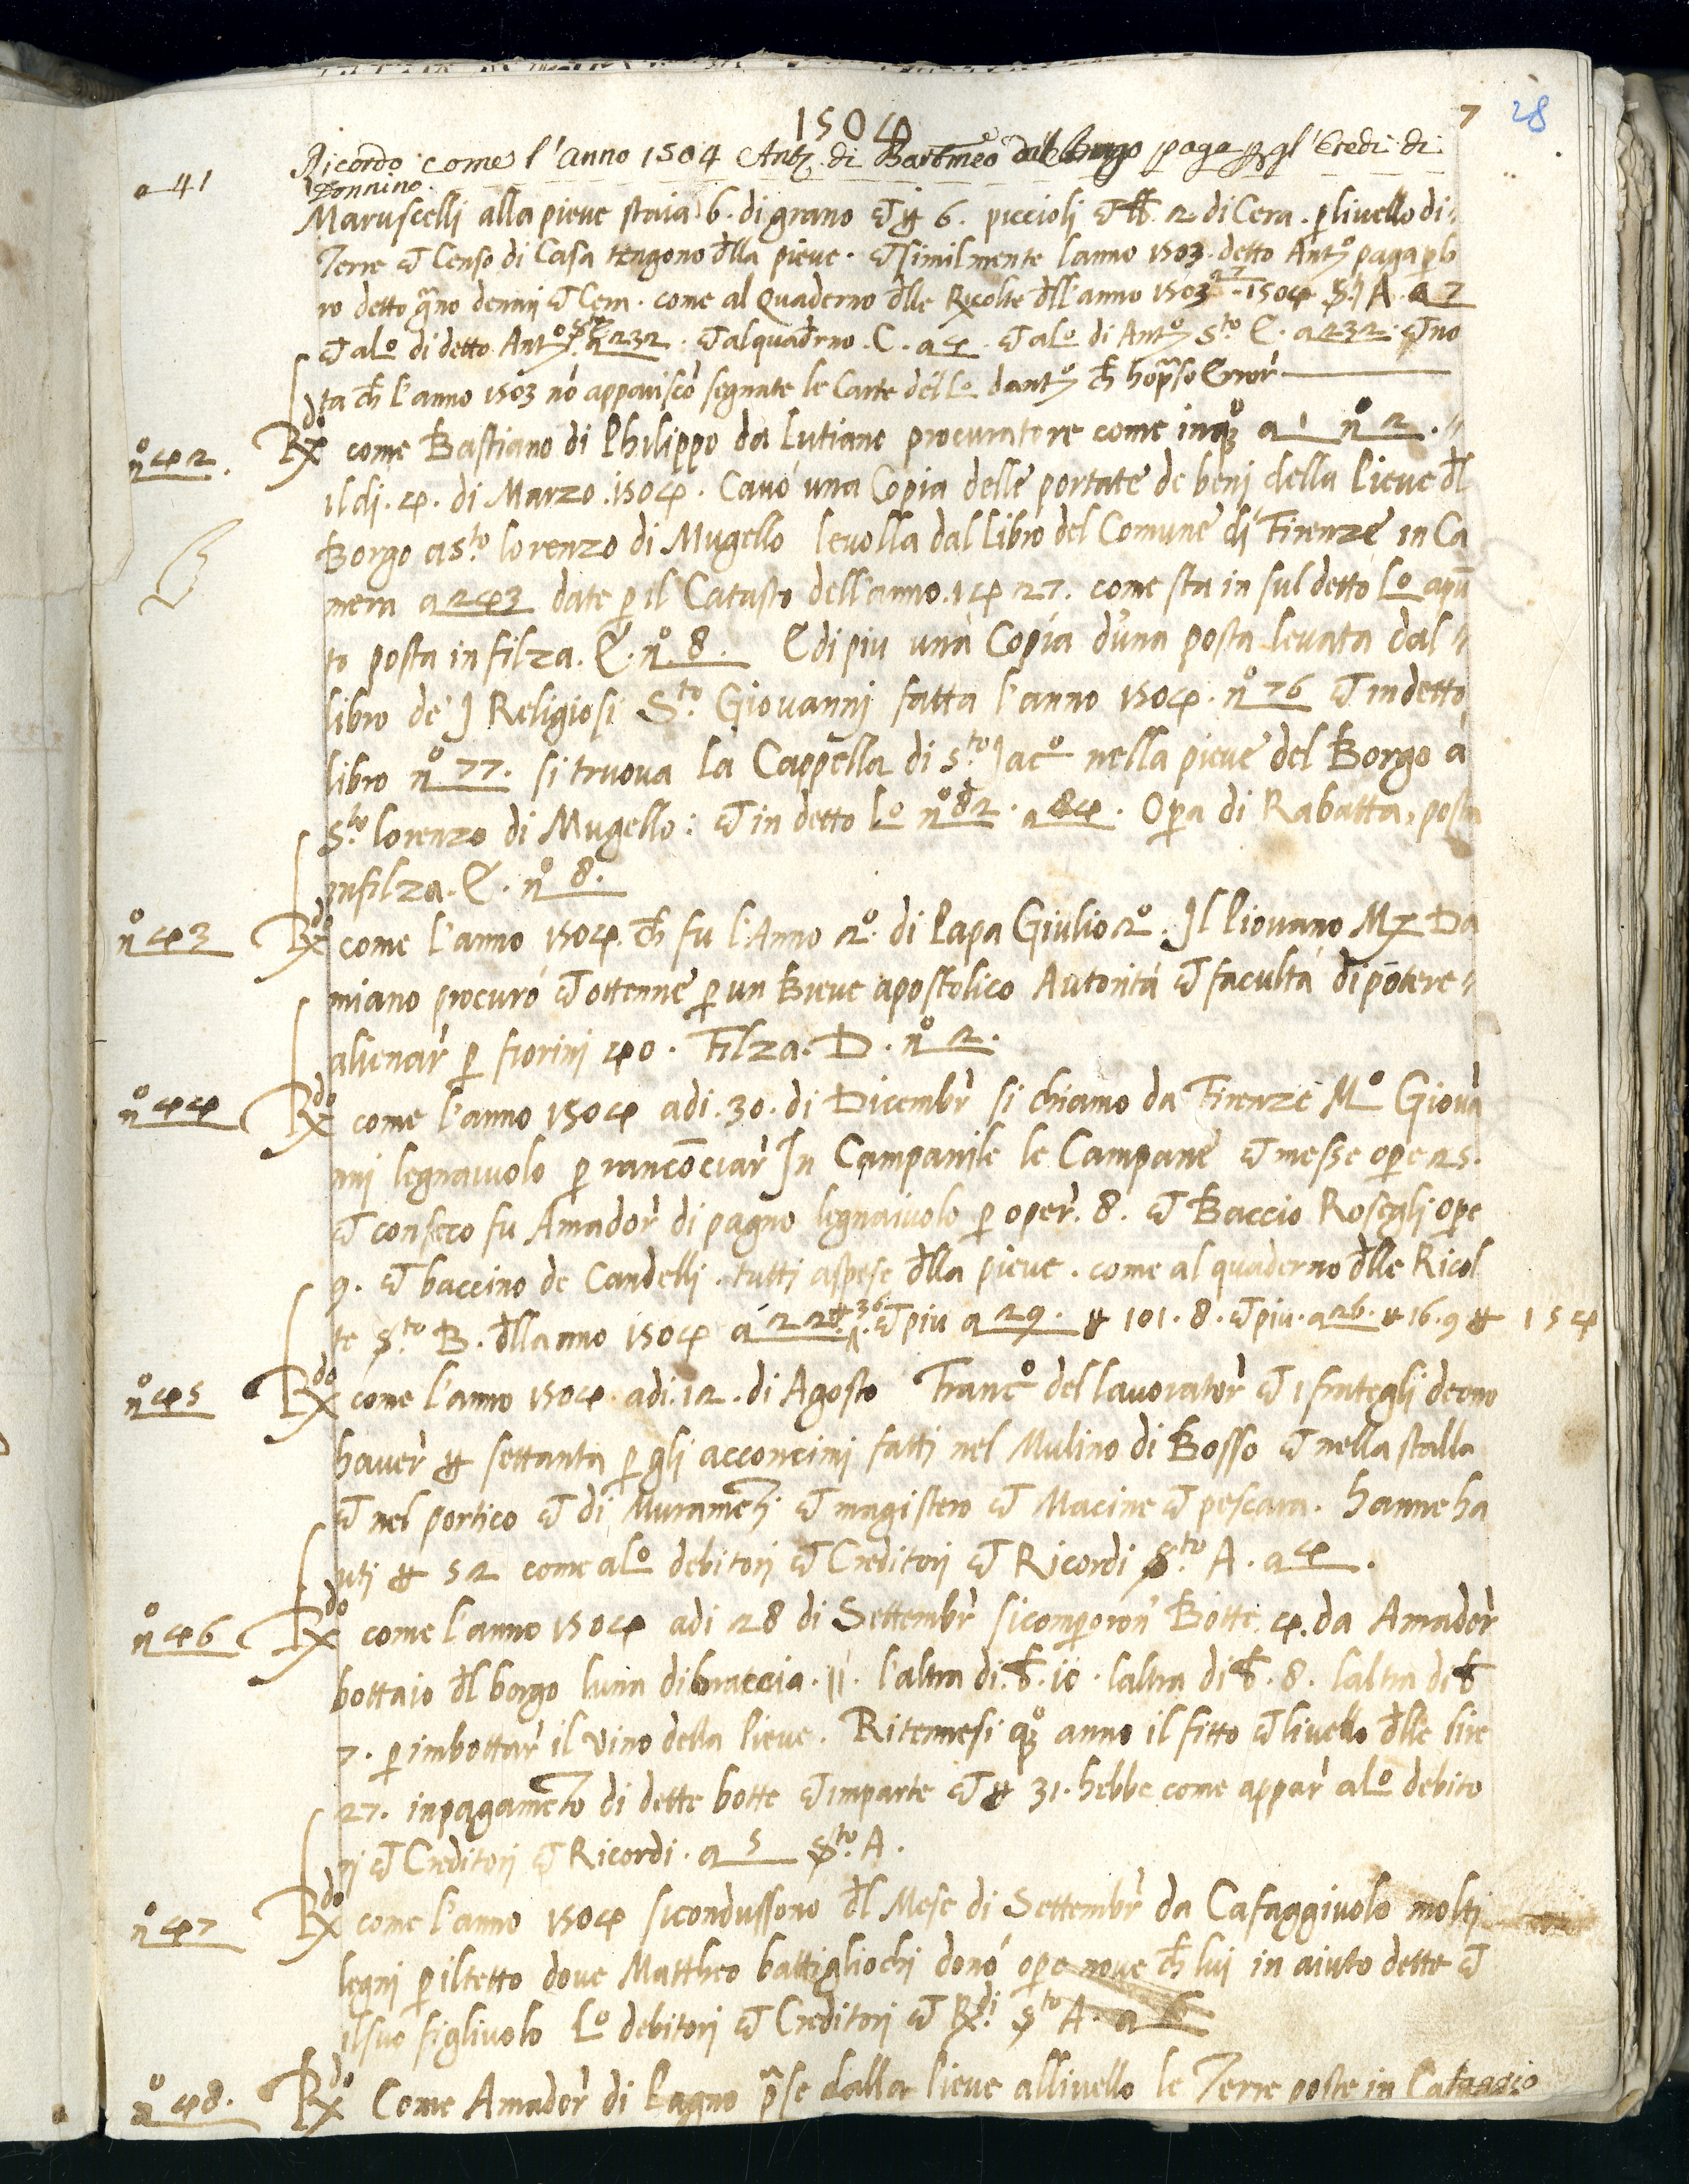 1504
7 28
Ricordo come l'anno 1504 Antº di Bartmeo dal Borgo paga p gl' Eredi di
a 41
Donnino
Maruscelli alla pieve staia 6. di grano et 6. piccioli et 2 di Cera. p livello di
Terre et Censo di Casa tengono dlla pieve. et similmente lanno 1503. detto Antº paga p lo
ro detto grano denni et Cera. come al Quaderno dlle Ricolte dll'anno 1503 1504 Sto A. a 7
et a Lo di detto Antº a 232. et al quadrno. C. a 4. et a Lo di Antº Sto C. a 232. et no
ta ch l'anno 1503 nò apparisco segnate le Carte del Lo dantº ch ho pso Error
nº 42
Rdo come Bastiano di Philippo da Lutiano procuratore come in qº a 1 nº 2.
Il dj. 4. di Marzo. 1504. Cavó una Copia delle portate de benj della Pieve dl
Borgo a sto lorenzo di Mugello levolla dal Libro del Comune di Firenze in Ca
mera a 243 date p il Catasto dell'anno. 1427. come sta in sul detto Lo apū
to posta in filza. C. nº 8. E di piu una Copia d'una posta levata dal
libro de j Religiosi Sto Giovannj fatta l'anno 1504. nº 76 et in detto
libro nº 77. si truova la Cappella di sto Jacº nella pieve del Borgo a
Sto lorenzo di Mugello: et in detto Lo nº 82. a 84. Opa di Rabatta, posta
in filza. C. nº 8.
nº 43
Rdo come l'anno 1504. ch fu l'Anno 2º di Papa Giulio 2º. Il Piovano Mz Da
miano procuró et ottenne p un Breve apostolico Autoritá et facultá di potere
alienar p fiorini 40. Filza. D. nº 2.
nº 44
Rdo come l'anno 1504 adi. 30. di Dicembr si chiamo da Firenze Mº Giovā
nj legnaiuolo p rancōciar In Campanile le Campane et messe ope 25.
et con seco fu Amador di pagno legnaiuolo p oper. 8. et Baccio Rosegli Ope
9. et baccino de Candelli. tutti a spese dlla pieve. come al quaderno dlle Ricol
te Sto B. dlla anno 1504 a 228. 36 et piu a 29. 101. 8. et piu. a 26. 16. 9 154
nº 45
Rdo come l'anno 1504. adi. 12. di Agosto Francº del lavorator et i frategli deono
haver settanta p gli acconcimi fatti nel Mulino di Bosso et nella stalla
et nel portico et di Muramētj et magistero et Macine et pescara. hanne ha
utj 52 come a Lo debitori et Creditori et Ricordi Sto A. a 4.
nº 46
Rdo come l'anno 1504 adi 28 di Settembr si comperoron Botte 4. da Amador
bottaio dl borgo luna di braccia. 11. l'altra di. b. 10. laltra di b. 8. laltra di b
7. p imbottar il vino della Pieve. Ritennesi qº anno il fitto et livello dlle lire
27. in pagamēto di dette botte et imparte et 31. hebbe come appar a Lo debito
rj et Creditori et Ricordi. a 5 Sto A.
nº 47
Rdo come l'anno 1504 si condussono dl Mese di Settembr da Cafaggiuolo molti
legni p il tetto dove Mattheo battigliochi donó ope nove ch lui in aiuto dette et
il suo figliuolo Lo debitori et Creditori et Rdi Sto A. a 6
nº 48.
Rdo Come Amador di Pagno pse dalla Pieve allivello le Terre poste in Cafaggio